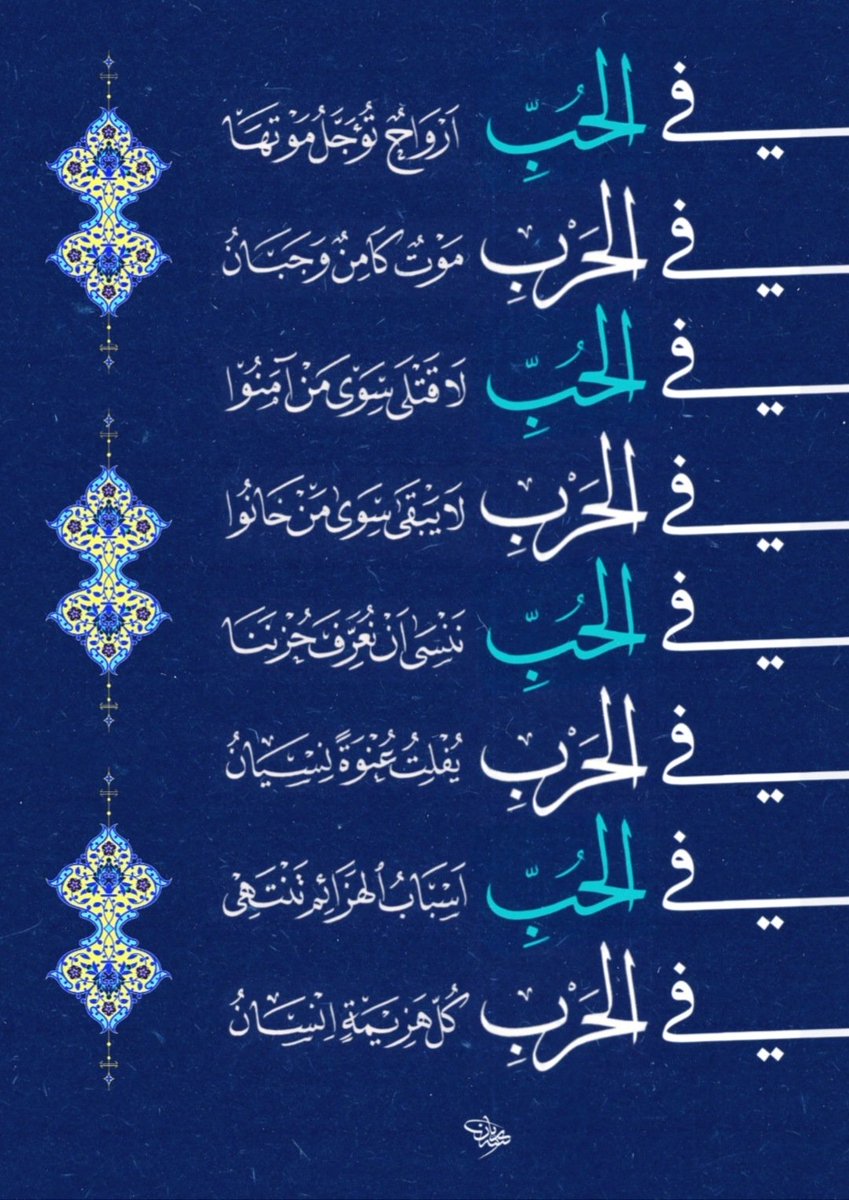 في الحُبِّ اَرْوَاحٌ تُؤَجَّلُ مَوْتهَا
في الحَرْبِ مَوْتٌ كَامِنٌ وَجَبَانُ
في الحُبِّ لَا قَتْلَى سِوَى مَنْ آمَنُوا
في الحَرْبِ لَا يَبْقَىٰ سِوَىٰ مَنْ خَانُوا
في الحُبِّ نَنْسَى اَنْ نُعَرِّفَ حُزْنَنَا
في الحَرْبِ يُفْلِتُ عُنْوَةً نِسْيَانُ
في الحُبِّ اَسْبَابُ الهَزَائِمِ تَنْتَهِيْ
في الحَرْبِ كُلّ هَزِيمَةٍ اِنْسَانُ